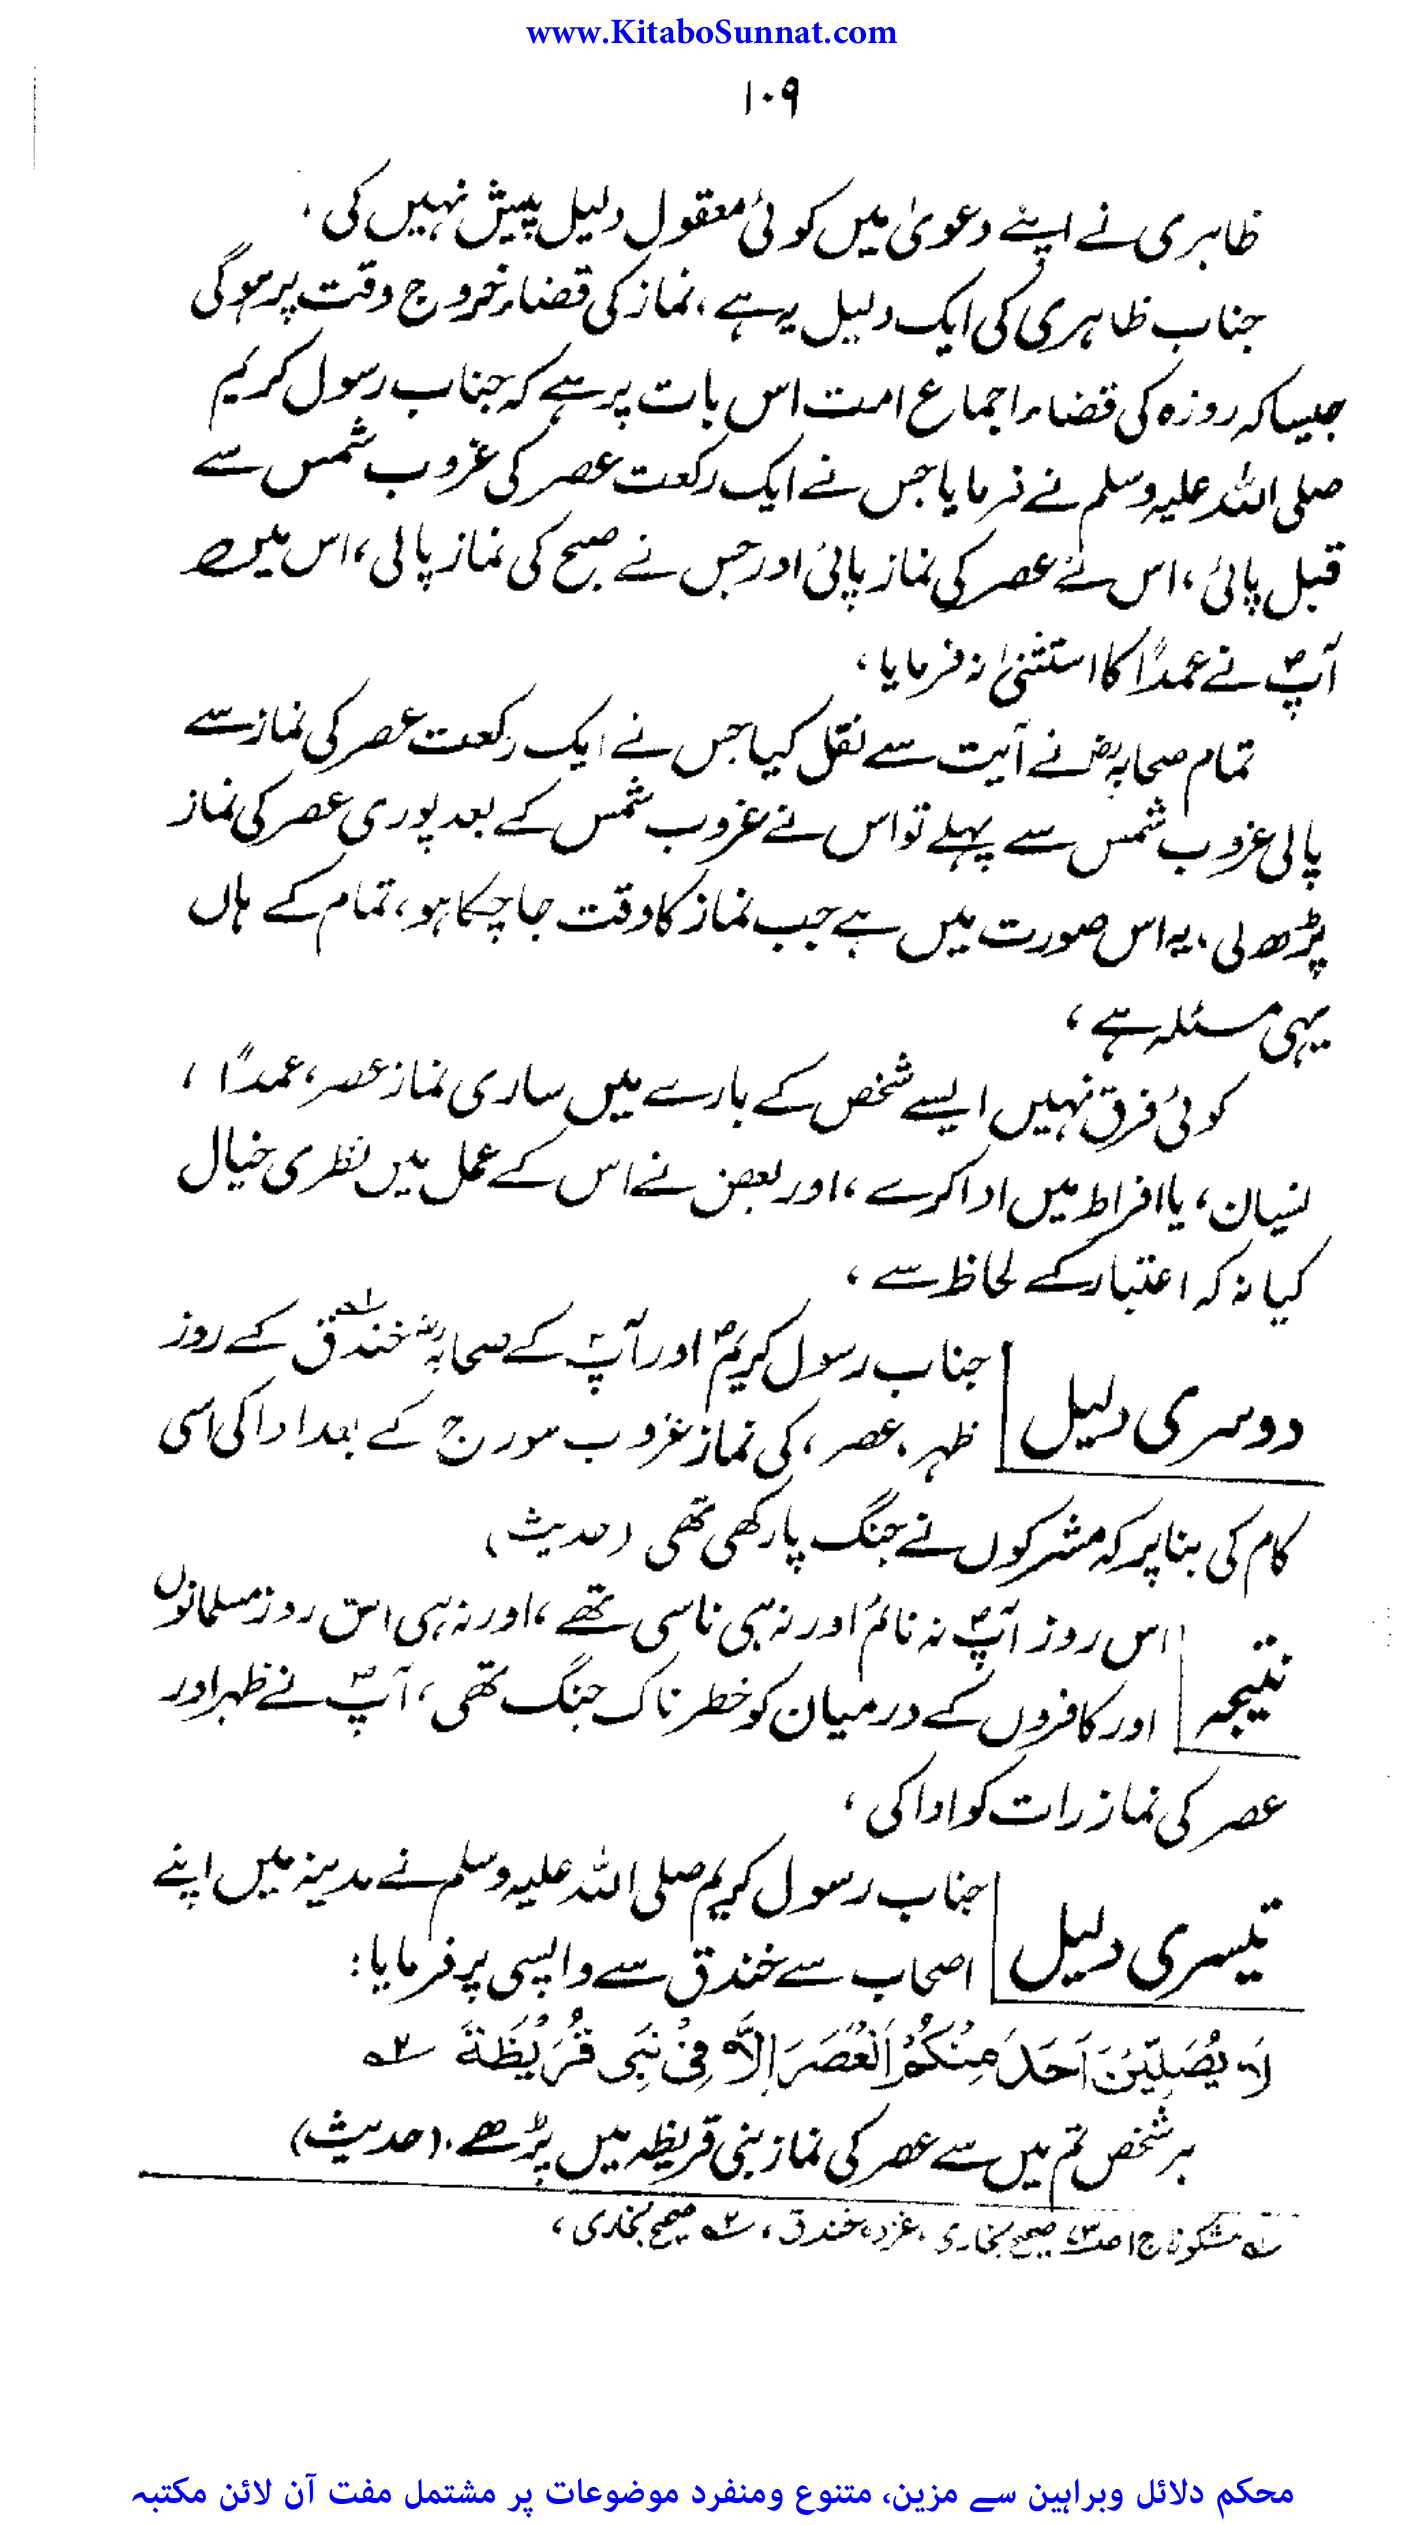 www.KitaboSunnat.com
۱۰۹
ظاہری نے اپنے دعویٰ میں کوئی معقول دلیل پیش نہیں کی۔
جناب ظاہری کی ایک دلیل یہ ہے، نماز کی قضاء خروج وقت پر ہوگی
جیسا کہ روزہ کی قضاء اجماع امت اس بات پر ہے کہ جناب رسول کریم
صلی اللہ علیہ وسلم نے فرمایا جس نے ایک رکعت عصر کی غروب شمس سے
قبل پائی، اس نے عصر کی نماز پائی اور جس نے صبح کی نماز پالی، اس میں
آپؐ نے عمداً کا استثنیٰ نہ فرمایا،
تمام صحابہؓ نے آیت سے نقل کیا جس نے ایک رکعت عصر کی نماز سے
پالی غروب شمس سے پہلے تو اس نے غروب شمس کے بعد پوری عصر کی نماز
پڑھ لی، یہ اس صورت میں ہے جب نماز کا وقت جا چکا ہو، تمام کے ہاں
یہی مسئلہ ہے،
کوئی فرق نہیں ایسے شخص کے بارے میں ساری نماز عصر، عمداً،
نسیان، یا افراط میں ادا کرے، اور بعض نے اس کے عمل میں نظری خیال
کیا نہ کہ اعتبار کے لحاظ سے،
دوسری دلیل
جناب رسول کریمؐ اور آپؐ کے صحابہؓ خندق ؎۱ کے روز
ظہر، عصر، کی نماز غروب سورج کے بعد ادا کی اسی
کام کی بنا پر کہ مشرکوں نے جنگ پا رکھی تھی (حدیث)
نتیجہ
اس روز آپؐ نہ نائم اور نہ ہی ناسی تھے، اور نہ ہی اس روز مسلمانوں
اور کافروں کے درمیان کو خطرناک جنگ تھی، آپؐ نے ظہر اور
عصر کی نماز رات کو ادا کی،
تیسری دلیل
جناب رسول کریم صلی اللہ علیہ وسلم نے مدینہ میں اپنے
اصحاب سے خندق سے واپسی پر فرمایا:
لَا يُصَلِّيَنَّ اَحَدٌ مِنْكُمُ الْعَصْرَ اِلَّا فِىْ بَنِى قُرَيْظَةَ ؎۲
ہر شخص تم میں سے عصر کی نماز بنی قریظہ میں پڑھے۔ (حدیث)
؎۱ مشکوٰة ج۱ صحیح بخاری، غزوہ خندق، ؎۲ صحیح بخاری،
محکم دلائل وبراہین سے مزین، متنوع ومنفرد موضوعات پر مشتمل مفت آن لائن مکتبہ